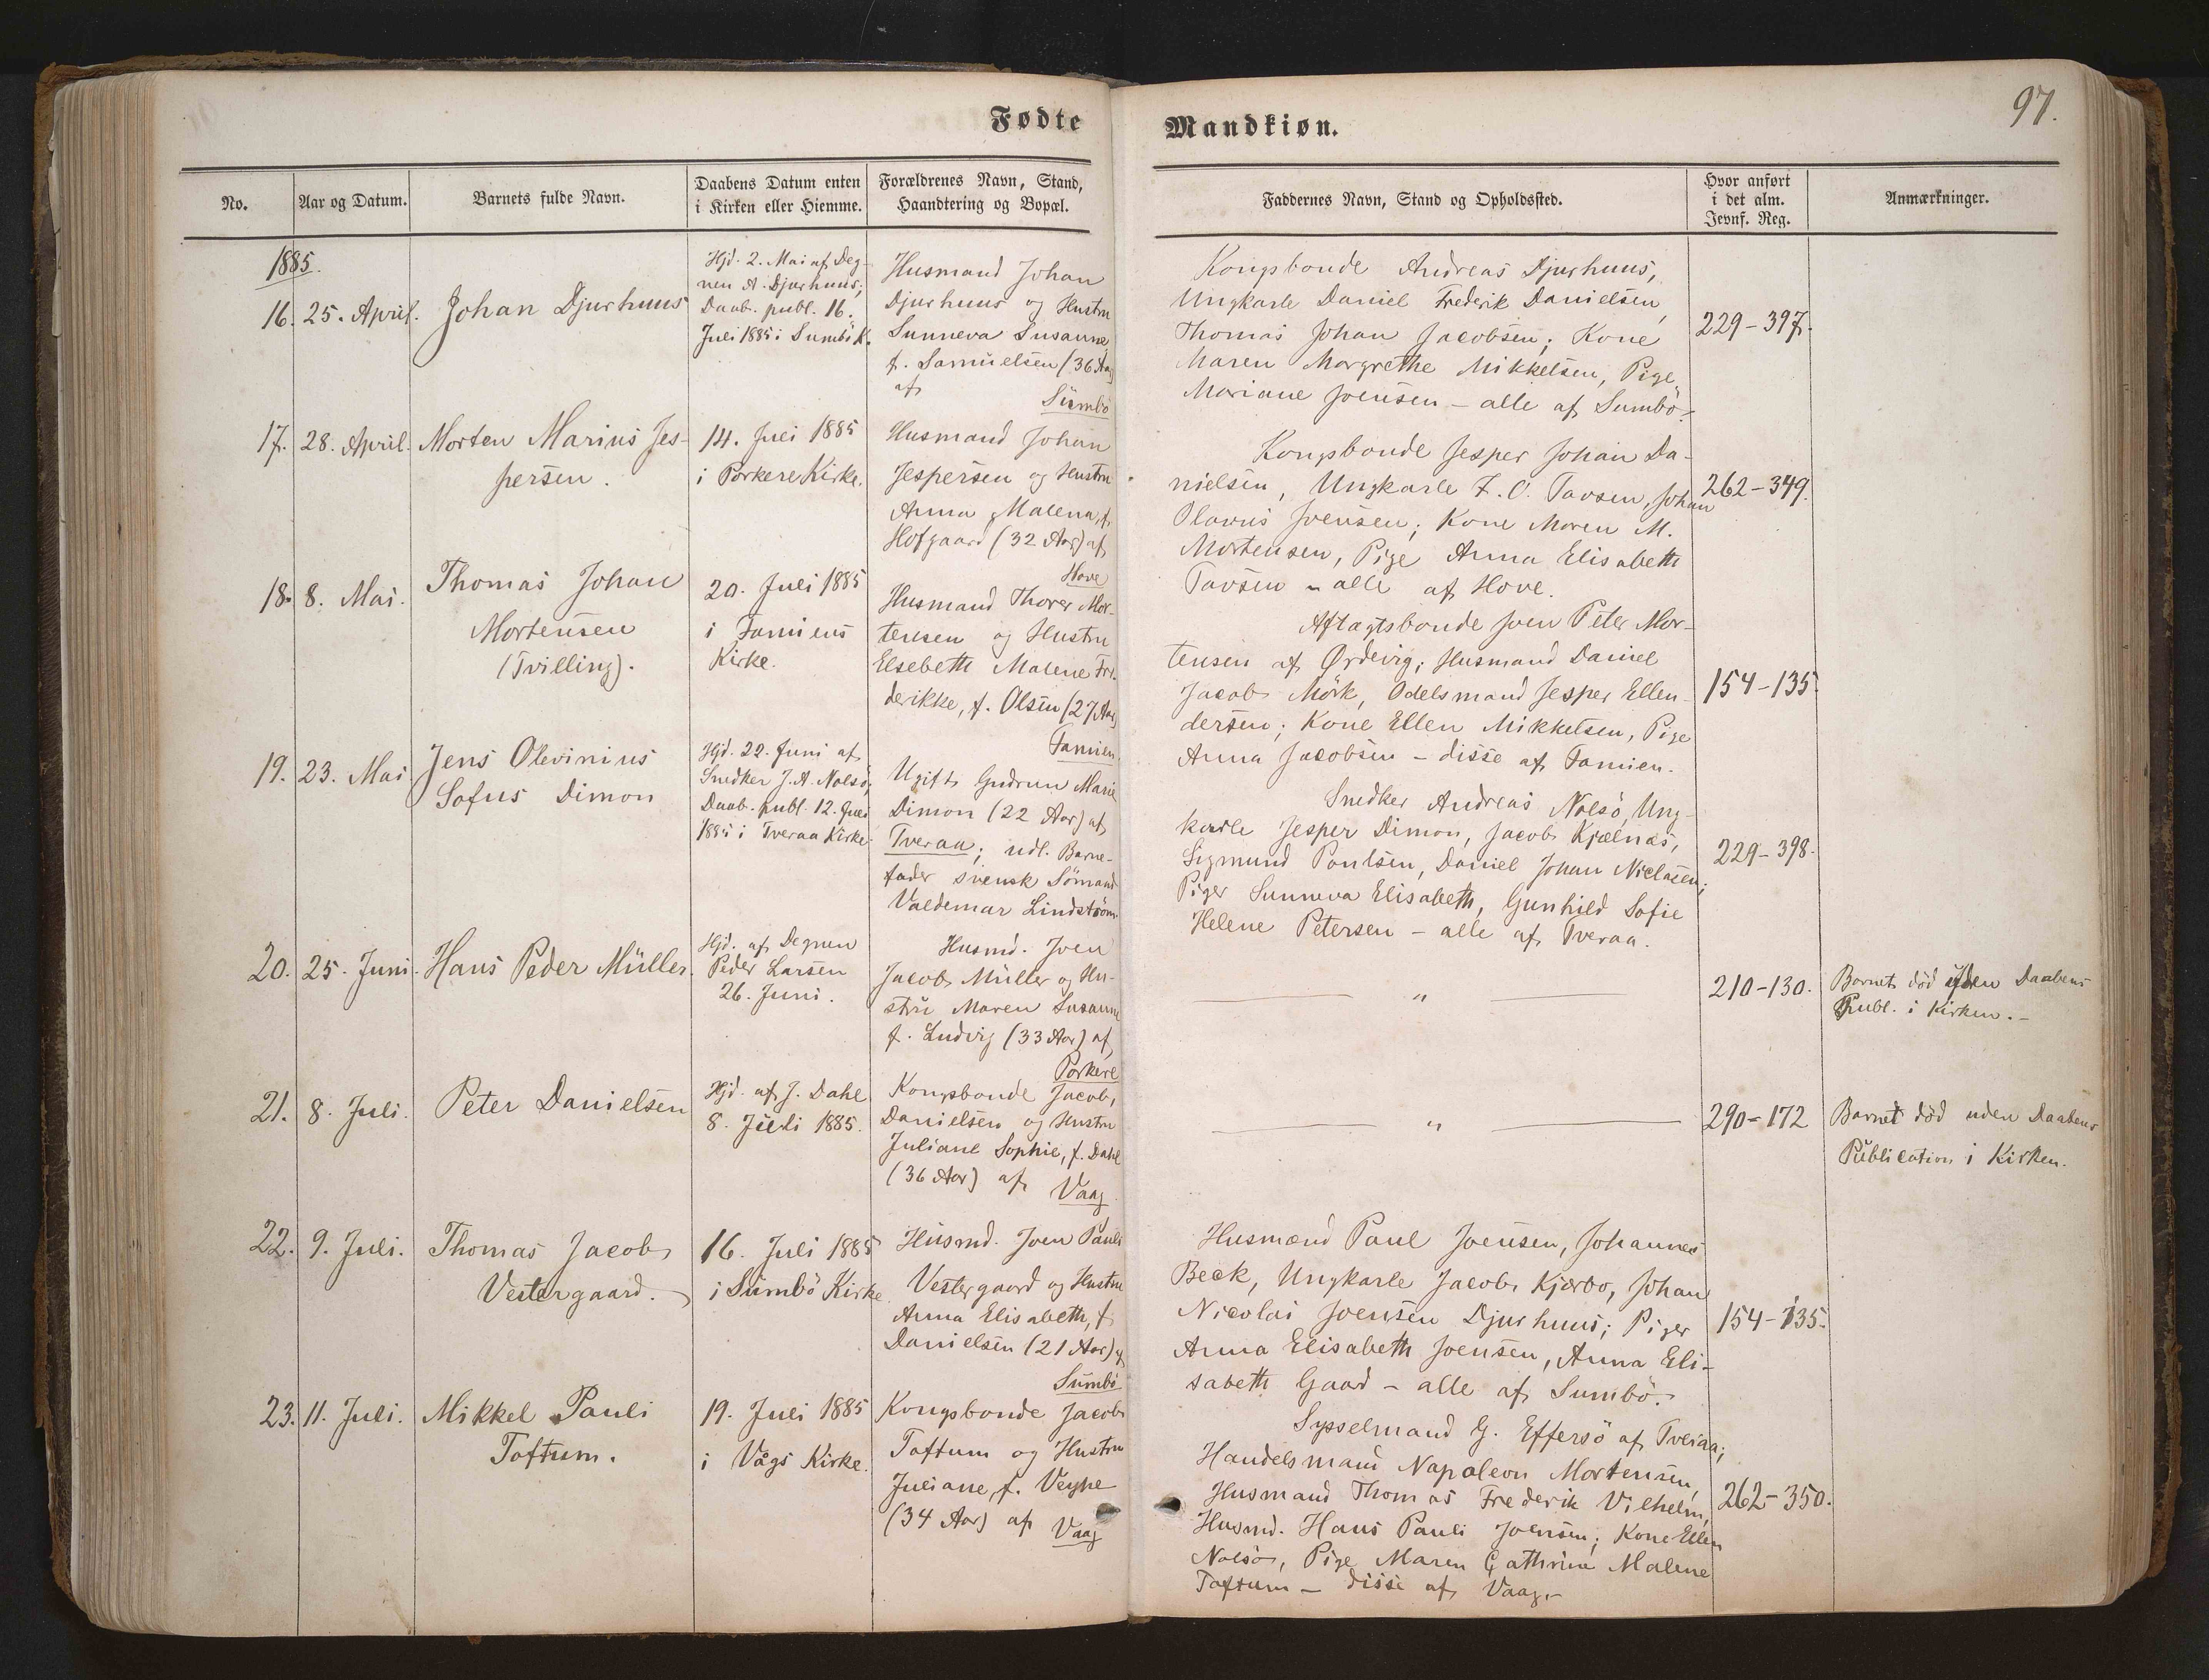 Fødte
No.
Aar og Datum.
Barnets fulde Navn.
Daabens Datum enten
i Kirken eller Hiemme.
Forældrenes Navn, Stand,
Haandtering og Bopæl.
1885.
16.
25. April.
Johan Djurhuus
Hjd. 2. Mai af Deg-
nen A. Djurhuus;
Daab. publ. 16.
Juli 1885 i Sumbö K.
Husmand Johan
Djurhuus og Hustru
Sunneva Susanne
f. Samuelsen (36 Aar)
af
Sumbö
17.
28. April.
Morten Marius Jes-
persen.
14. Juli 1885
i Porkere Kirke.
Husmand Johan
Jespersen og Hustru
Anna Malena, f.
Hofgaard (32 Aar) af
Hove
18.
8. Mai.
Thomas Johan
Mortensen
(Tvilling).
20. Juli 1885
i Famiens
Kirke.
Husmand Thorer Mor-
tensen og Hustru
Elsebeth Malene Fre-
derikke, f. Olsen (27 Aar)
Famien.
19.
23. Mai
Jens Olevinius
Sofus Dimon
Hjd. 22. Juni af
Snedker J. A. Nolsö;
Daab. publ. 12. Juli
1885 i Tveraa Kirke.
Ugift Gudrun Marie
Dimon (22 Aar) af
Tveraa; udl. Barne-
fader svensk Sömand
Valdemar Lindström.
20.
25. Juni.
Hans Peder Müller.
Hjd. af Degnen
Peder Larsen
26. Juni.
Husmd. Joen
Jacob Müller og Hu-
stru Maren Susanne
f. Ludvig (33 Aar) af
Porkere
21.
8. Juli.
Peter Danielsen
Hjd. af J. Dahl
8. Juli 1885.
Kongsbonde Jacob
Danielsen og Hustru
Juliane Sophie, f. Dahl
(36 Aar) af
Vaag
22.
9. Juli.
Thomas Jacob
Vestergaard.
16. Juli 1885
i Sumbö Kirke
Husmd. Joen Pauli
Vestergaard og Hustru
Anna Elisabeth, f.
Danielsen (21 Aar) af
Sumbö
23.
11. Juli.
Mikkel Pauli
Toftum.
19. Juli 1885
i Vågs Kirke.
Kongsbonde Jacob
Toftum og Hustru
Juliane, f. Veyhe
(34 Aar) af Vaag
97.
Mandkiøn.
Faddernes Navn, Stand og Opholdssted.
Hvor anført
i det alm.
Jevnf. Reg.
Anmærkninger.
Kongsbonde Andreas Djurhuus,
Ungkarle Daniel Frederik Danielsen,
Thomas Johan Jacobsen; Kone
Maren Margrethe Mikkelsen, Pige
Mariane Joensen - alle af Sumbö.
229-397.
Kongsbonde Jesper Johan Da-
nielsen, Ungkarle Z. O. Tavsen, Johan
Olavus Joensen; Kone Maren M.
Mortensen, Pige Anna Elisabeth
Tavsen - alle af Hove.
262-349.
Aftagtsbonde Joen Peter Mor-
tensen af Ørdevig; Husmand Daniel
Jacob Mörk, Odelsmand Jesper Ellen-
dersen; Kone Ellen Mikkelsen, Pige
Anna Jacobsen - disse af Famien.
154-135.
Snedker Andreas Nolsö, Ung-
karle Jesper Dimon, Jacob Kjælnæs,
Sigmund Poulsen, Daniel Johan Niclasen;
Piger Sunneva Elisabeth, Gunhild Sofie
Helene Petersen - alle af Tveraa.
229-398.
— " —
210-130.
Barnet död uden Daabens
Publ. i Kirken.-
— " —
290-172
Barnet död uden Daabens
Publication i Kirken.
Husmænd Paul Joensen, Johannes
Beck, Ungkarle Jacob Kjærbo, Johan
Nicolai Joensen Djurhuus; Piger
Anna Elisabeth Joensen, Anna Eli-
sabeth Gaard - alle af Sumbö.
154-135.
Sysselmand G. Effersö af Tveraa;
Handelsmand Napoleon Mortensen,
Husmand Thomas Frederik Vilhelm,
Husmd. Hans Pauli Joensen; Kone Ellen
Nolsö, Pige Maren Cathrine Malene
Toftum - disse af Vaag.-
262-350.